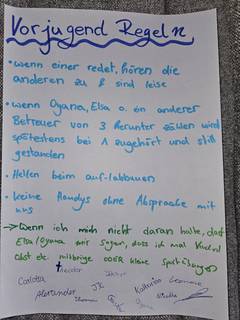 Vorjugend Regeln
• wenn einer redet, hören die
anderen zu & sind leise
• wenn Oyana, Elsa o. ein anderer
Betreuer von 3 herunter zählen wird
spätestens bei 1 zugehört und still
gestanden
• Helfen beim auf-/abbauen
• keine Handys ohne Absprache mit
uns
→ Wenn ich mich nicht daran halte, darf
Elsa/Oyana mir sagen, dass ich mal Kuchen/
Obst etc. mitbringe oder kleine
Carlotta Theodor
Alexander JK